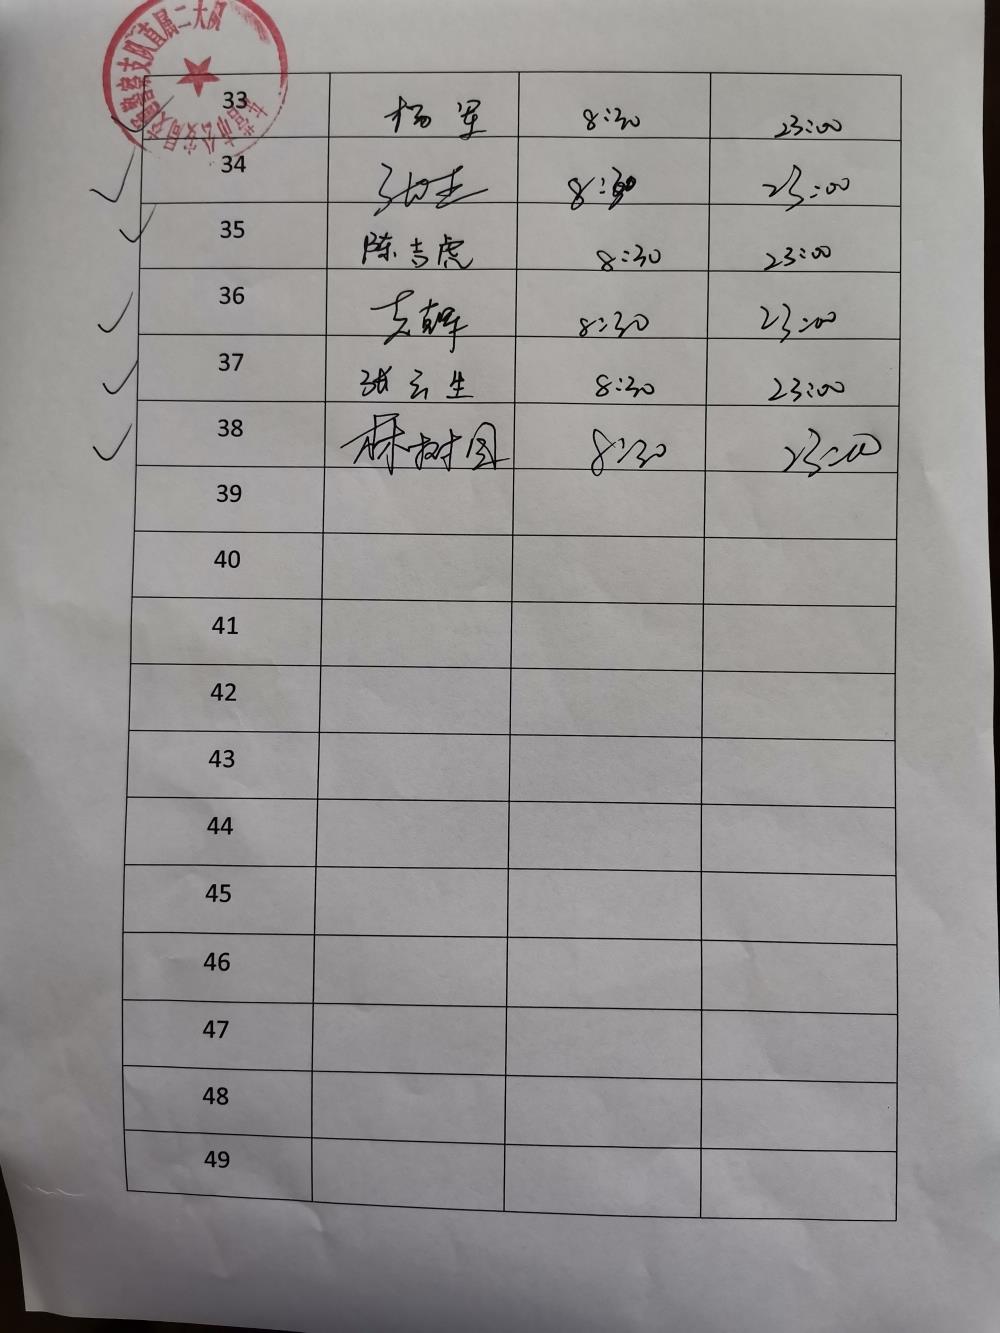 交警支队直属二大队
33 杨军 8:30 23:00
34 8:30 23:00
35 陈吉虎 8:30 23:00
36 8:30 23:00
37 张云生 8:30 23:00
38 林树国 8:30 23:00
39
40
41
42
43
44
45
46
47
48
49